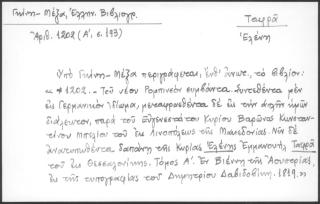 Γκίνη - Μέξα, Ἑλλην. Βιβλιογρ.
Ἀριθ. 1202 (Α', σ. 193)
Ταττρᾶ
Ἑλένη
Ὑπὸ Γκίνη - Μέξα περιγράφεται, ἔνθ' ἀνωτ., τὸ βιβλίον:
« * 1202. - Τοῦ νέου Ρομπινσὸν συμβάντα. Συντεθέντα μὲν
εἰς Γερμανικὸν ἰδίωμα, μεταφρασθέντα δὲ εἰς τὴν ἁπλῆν ἡμῶν
διάλεκτον, παρὰ τοῦ εὐγενεστάτου Κυρίου Βαρῶνος Κωνσταν-
τίνου Μπέλιου τοῦ ἐκ Λινοτόπεως τῆς Μακεδονίας. Νῦν δὲ
ἀνατυπωθέντα δαπάνῃ τῆς Κυρίας Ἑλένης Ἐμμανουὴλ Ταττρᾶ
τοῦ ἐκ Θεσσαλονίκης. Τόμος Α'. Ἐν Βιέννῃ τῆς Ἀουστρίας,
ἐκ τῆς τυπογραφίας τοῦ Δημητρίου Δαβιδοβίκη. 1819.»